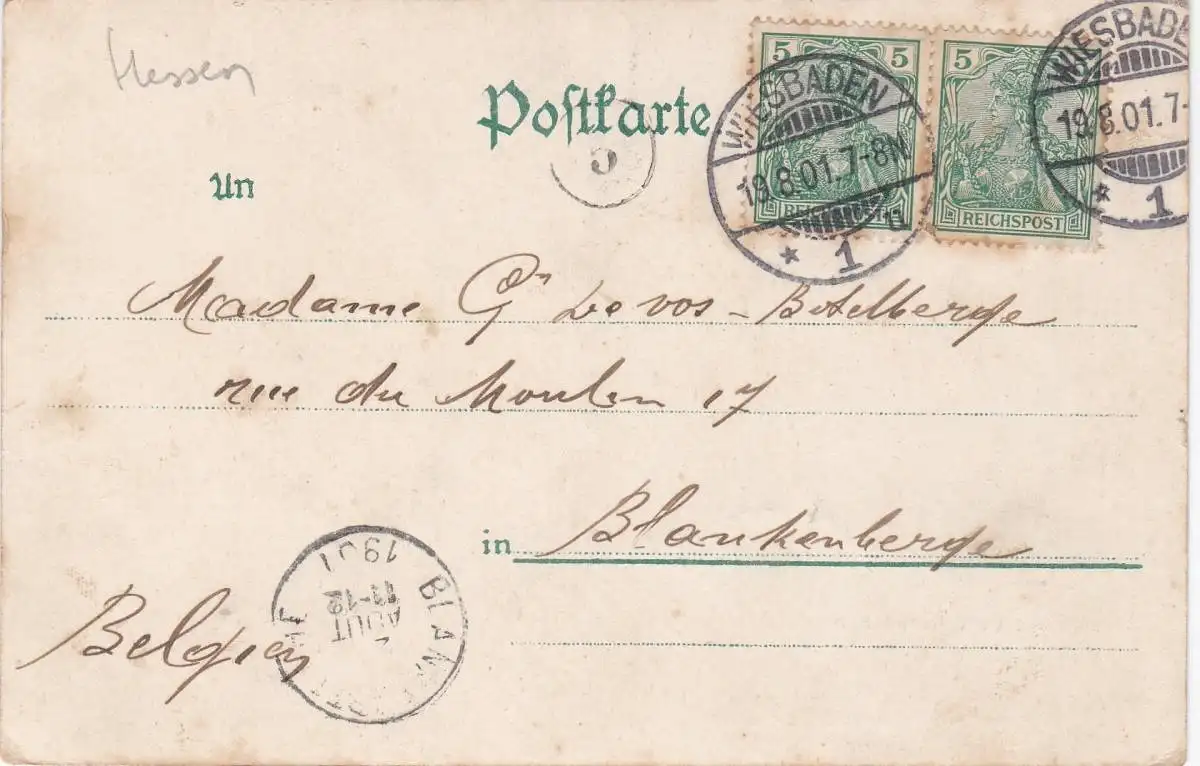 Hessen
Postkarte
5 5
REICHSPOST
5
REICHSPOST
WIESBADEN
19.8.01.7-8N
* 1 u
WIESBADE
19.8.01.7-
* 1
5
An
Madame Gᵒⁿ De vos - Botelberge
rue du Moulin 17
in Blankenberge
Belgien
1901
11-12
AOUT
BLANK